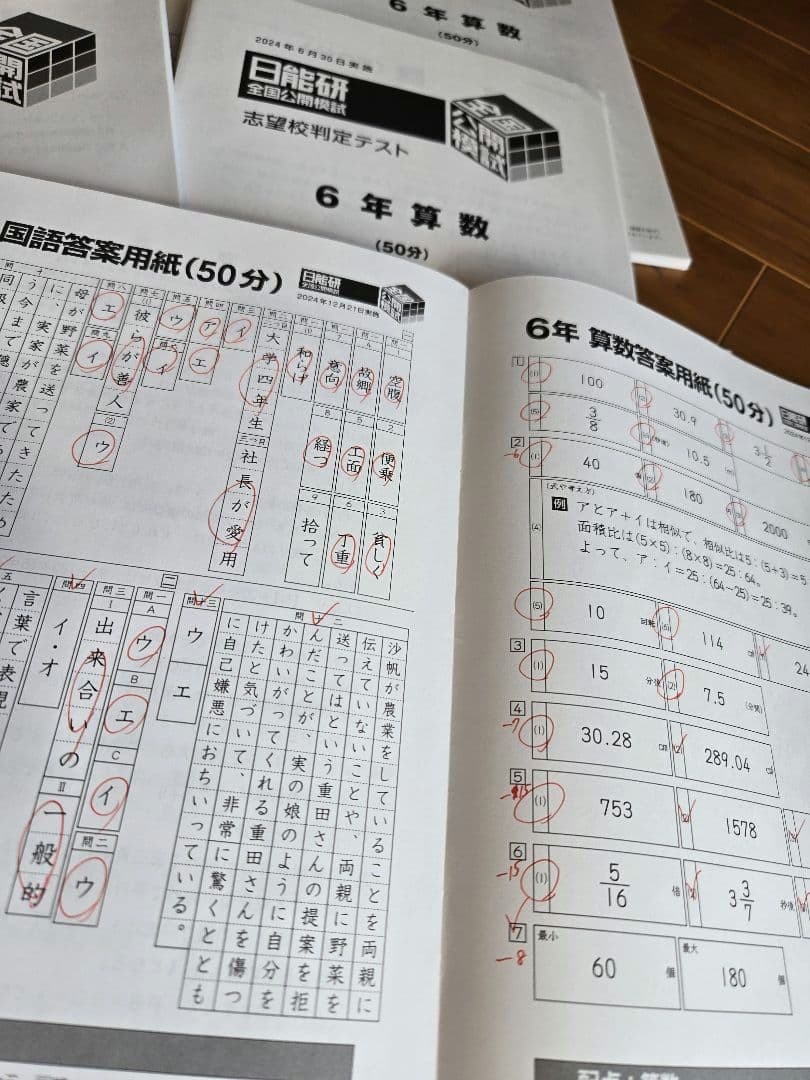 6年算数
(50分)
全国
公開
模試
2024年6月30日実施
日能研
全国公開模試
志望校判定テスト
全国
公開
模試
6年算数
(50分)
国語答案用紙(50分)
日能研
全国公開模試
2024年12月21日実施
空腹
便乗
貧しく
故郷
工面
丁重
意向
経つ
拾って
和らげ
大学四年生
社長が愛用
イ
ア
エ
ウ
イ
彼らが善人
ウ
エ
イ
母が野菜を送ってきたため
に、実家が農家
問十二
沙帆が農業をしていることを両親に
伝えていないことや、両親に野菜を
送ってはという重田さんの提案を拒
んだことが、実の娘のように自分を
かわいがってくれる重田さんを傷つ
けたと気づいて、非常に驚くととも
に自己嫌悪におちいっている。
問十三
ウ
エ
二
問一
A
ウ
B
エ
C
イ
問二
ウ
問三
I
出来合いの
II
一般的
問四
イ・オ
五
言葉で表現
6年 算数答案用紙(50分)
1
(1) 100
30.9
3 1/2
(5) 3/8
10.5
2
-6
(1) 40
180
2000
(4)
(式や考え方)
例 アとア+イは相似で、相似比は5:(5+3)=5
面積比は(5×5):(8×8)=25:64。
よって、ア:イ=25:(64-25)=25:39。
(5) 10 回転
(6) 114
24
3
(1) 15 分後
(2) 7.5 (分間)
4
-7
(1) 30.28 cm
(2) 289.04
5
(1) 753
(2) 1578
6
-15
(1) 5/16 倍
(2) 3 3/7 秒後
7
-8
最小
60 個
最大
180 個
配点:算数